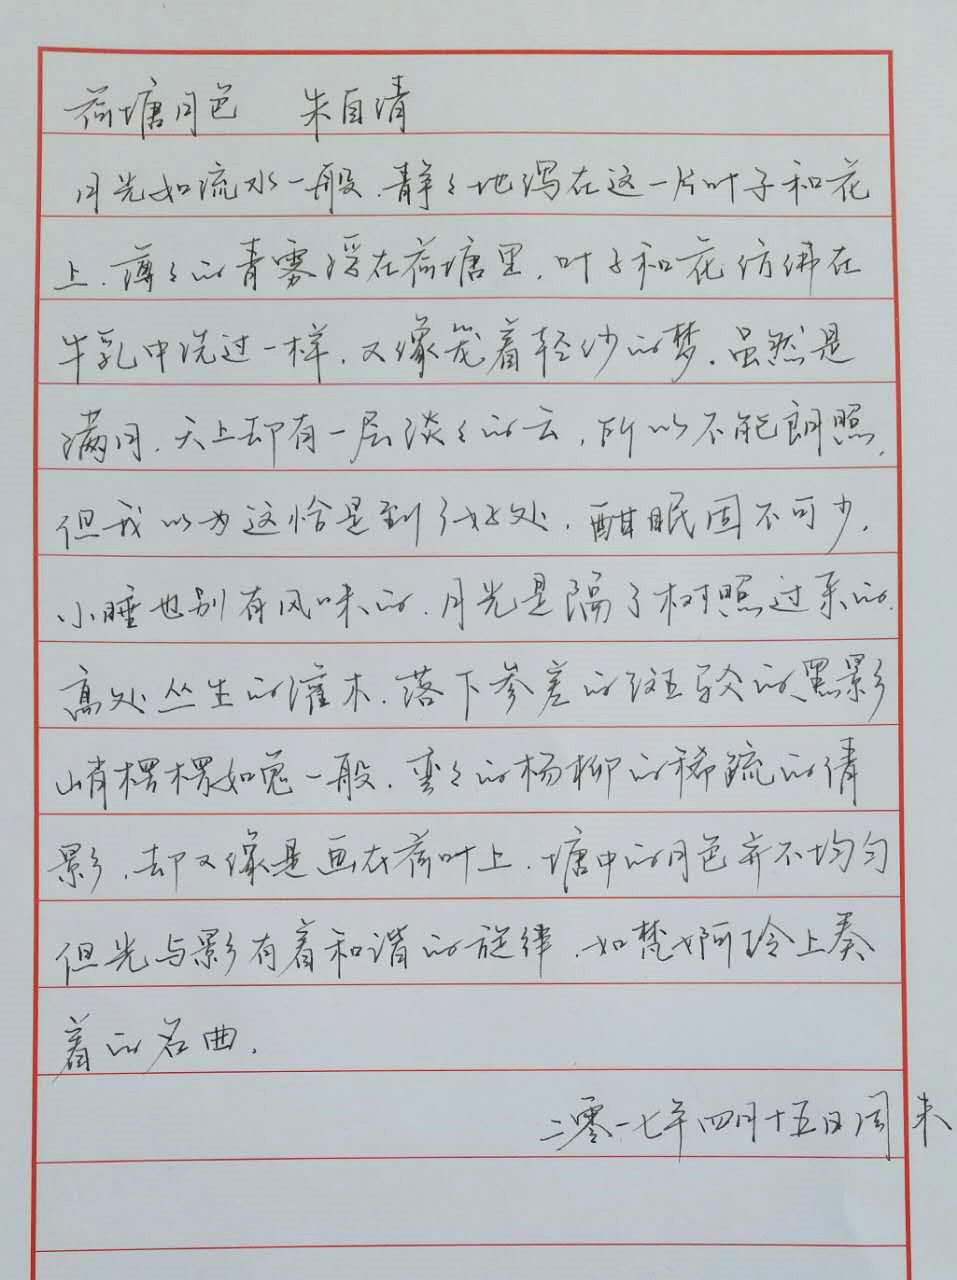 荷塘月色 朱自清
月光如流水一般.静々地泻在这一片叶子和花
上.薄々的青雾浮在荷塘里.叶子和花仿佛在
牛乳中洗过一样.又像笼着轻纱的梦.虽然是
满月.天上却有一层淡々的云,所以不能朗照.
但我以为这恰是到了好处.酣眠固不可少.
小睡也别有风味的.月光是隔了树照过来的.
高处丛生的灌木.落下参差的斑驳的黑影
峭楞楞如鬼一般.弯々的杨柳的稀疏的倩
影.却又像是画在荷叶上.塘中的月色并不均匀
但光与影有着和谐的旋律.如梵婀玲上奏
着的名曲.
二零一七年四月十五日周末